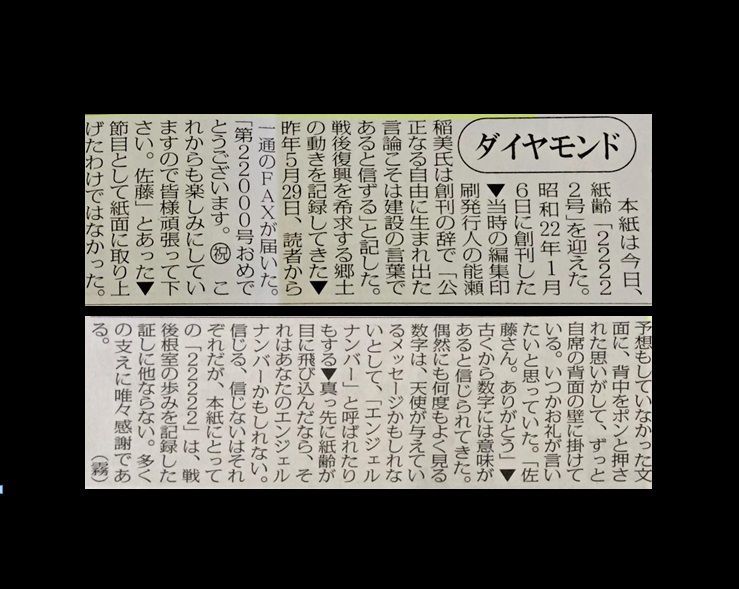 ダイヤモンド
本紙は今日、
紙齢「2222
2号」を迎えた。
昭和22年1月
6日に創刊した
▼当時の編集印
刷発行人の能瀬
稲美氏は創刊の辞で「公
正なる自由に生まれ出た
言論こそは建設の言葉で
あると信ずる」と記した。
戦後復興を希求する郷土
の動きを記録してきた▼
昨年5月29日、読者から
一通のFAXが届いた。
「第22000号おめで
とうございます。㊗こ
れからも楽しみにしてい
ますので皆様頑張って下
さい。佐藤」とあった▼
節目として紙面に取り上
げたわけではなかった。
予想もしていなかった文
面に、背中をポンと押さ
れた思いがして、ずっと
自席の背面の壁に掛けて
いる。いつかお礼が言い
たいと思っていた。「佐
藤さん。ありがとう」▼
古くから数字には意味が
あると信じられてきた。
偶然にも何度もよく見る
数字は、天使が与えてい
るメッセージかもしれな
いとして、「エンジェル
ナンバー」と呼ばれたり
もする▼真っ先に紙齢が
目に飛び込んだなら、そ
れはあなたのエンジェル
ナンバーかもしれない。
信じる、信じないはそれ
ぞれだが、本紙にとって
の「22222」は、戦
後根室の歩みを記録した
証しに他ならない。多く
の支えに唯々感謝であ
る。
(霧)